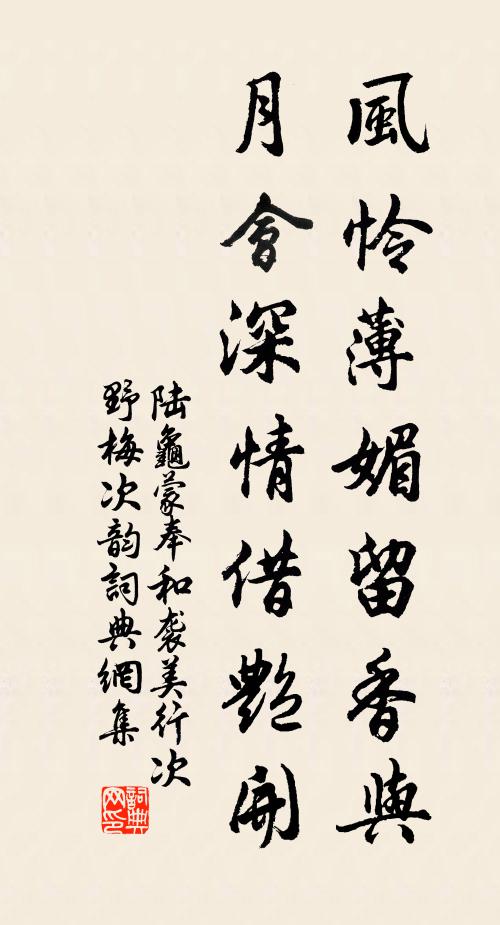 風怜薄媚留香與
月會深情借艷開
陆龜蒙奉和袭美行次
野梅次韵詞典網集
詞典
网印